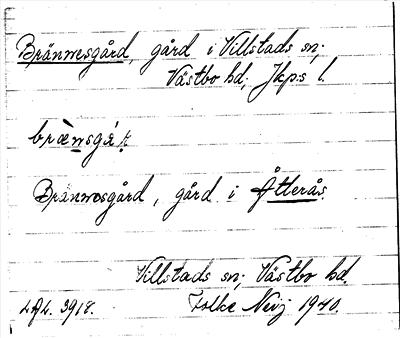 Brännesgård, gård i Villstads sn;
Västbo hd, Jkps l.
Brännesgård, gård i Åtterås.
Villstads sn; Västbo hd.
LAL. 3918. Folke Neij 1940.